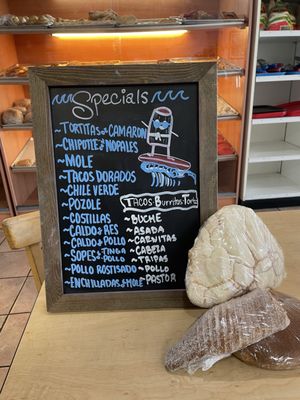 Specials
~TORTITAS DE CAMARON
~CHIPOTLE NOPALES
~MOLE
~TACOS DORADOS
~CHILE VERDE
~POZOLE
~COSTILLAS
~CALDO DE RES
~CALDO DE POLLO
~SOPES TINGA POLLO
~POLLO ROSTISADO
~ENCHILLADAS MOLE
TACOS Burritos Torta
~BUCHE
~ASADA
~CARNITAS
~CABEZA
~TRIPAS
~POLLO
PASTOR